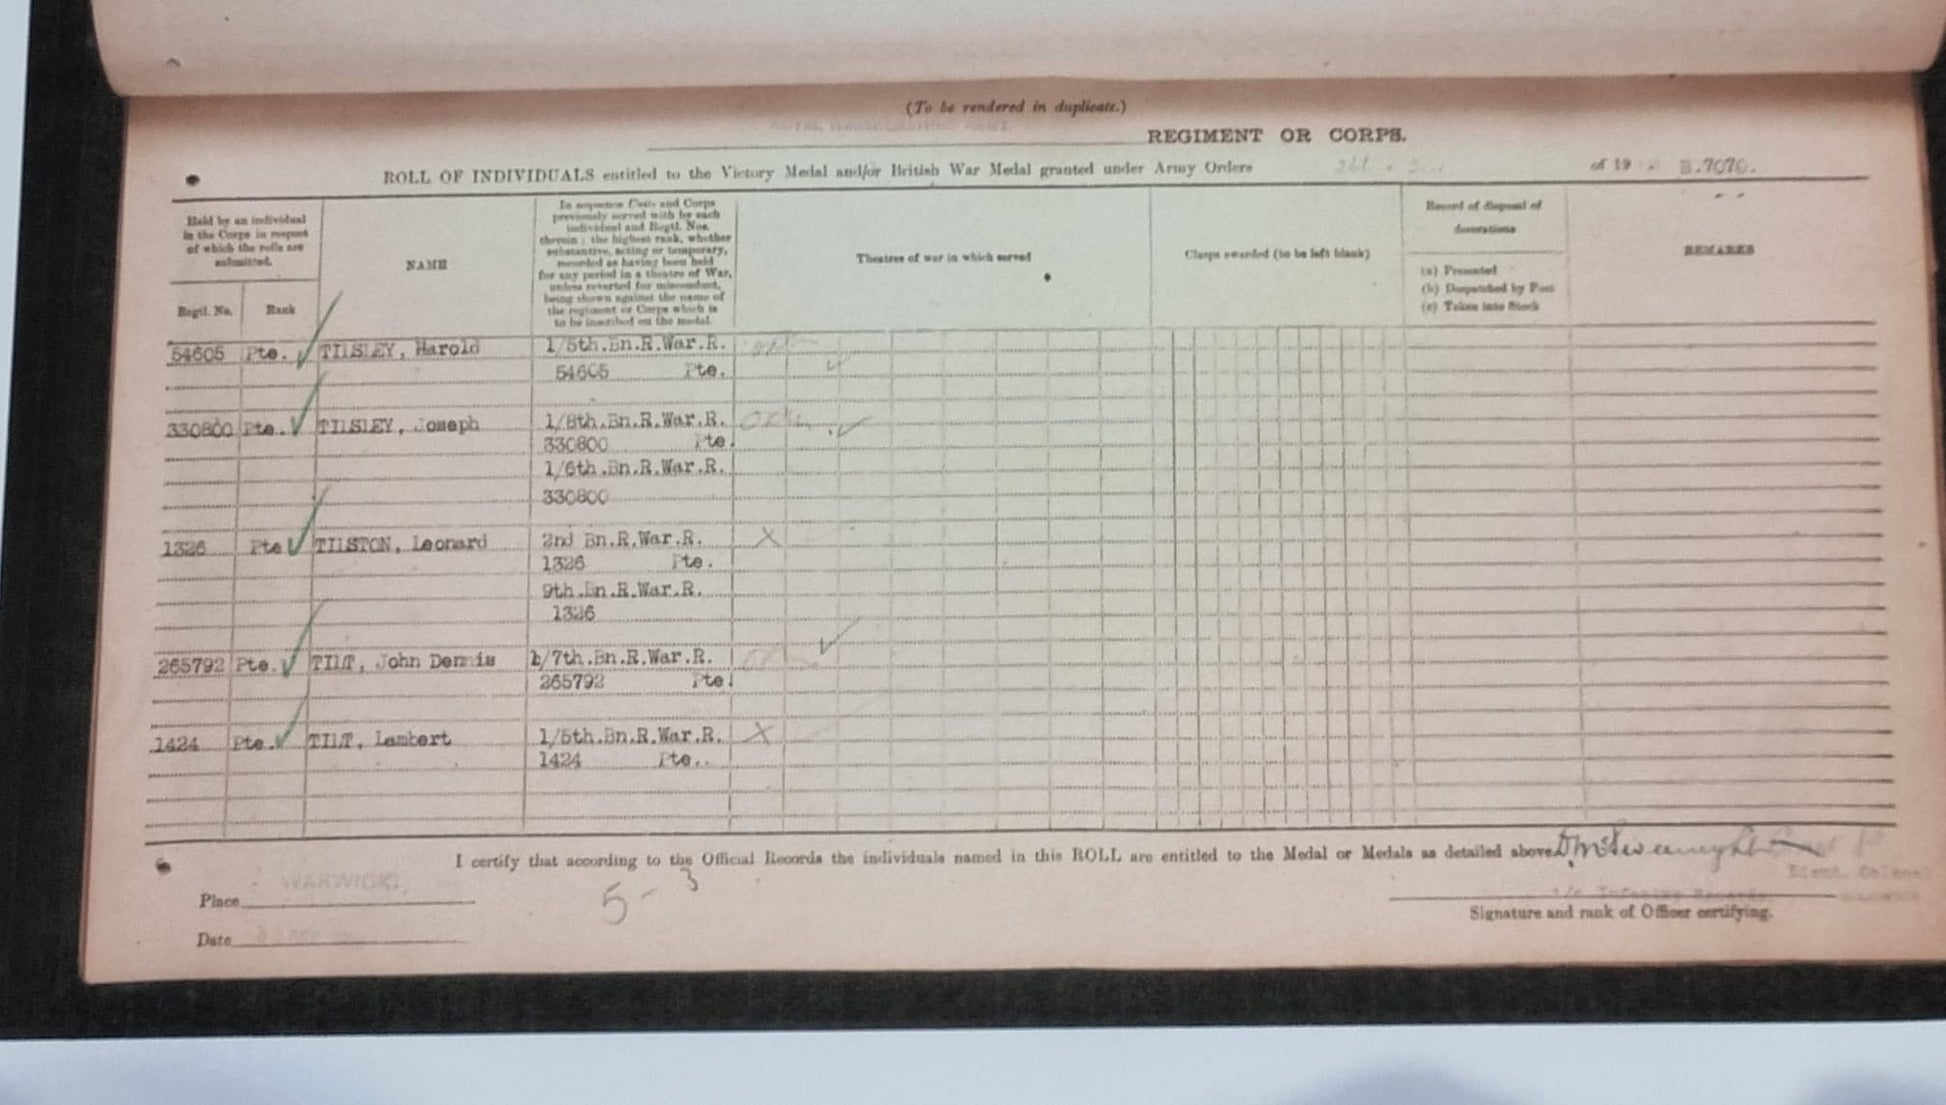 (To be rendered in duplicate.)
REGIMENT OR CORPS.
ROLL OF INDIVIDUALS entitled to the Victory Medal and/or British War Medal granted under Army Orders of 19 B.7070.
Held by an individual
in the Corps in respect
of which the rolls are
submitted.
Regtl. No.
Rank
NAME
In sequence Units and Corps
previously served with by each
individual and Regtl. Nos.
therein; the highest rank, whether
substantive, acting or temporary,
recorded as having been held
for any period in a theatre of War,
unless reverted for misconduct,
being shown against the name of
the regiment or Corps which is
to be inscribed on the medal.
Theatres of war in which served
Clasps awarded (to be left blank)
Record of disposal of
decorations
(a) Presented
(b) Despatched by Post
(c) Taken into Stock
REMARKS
54605 Pte. TILSLEY, Harold 1/5th.Bn.R.War.R.
54605 Pte.
330800 Pte. TILSLEY, Joseph 1/8th.Bn.R.War.R.
330800 Pte.
1/6th.Bn.R.War.R.
330800
1326 Pte TILSTON, Leonard 2nd Bn.R.War.R. X
1326 Pte.
9th.Bn.R.War.R.
1326
265792 Pte. TILT, John Dennis 2/7th.Bn.R.War.R.
265792 Pte.
1424 Pte. TILT, Lambert 1/5th.Bn.R.War.R. X
1424 Pte..
I certify that according to the Official Records the individuals named in this ROLL are entitled to the Medal or Medals as detailed above.
Lieut. Colonel
i/c Infantry Records
WARWICK
Place
5-3
Signature and rank of Officer certifying.
Date